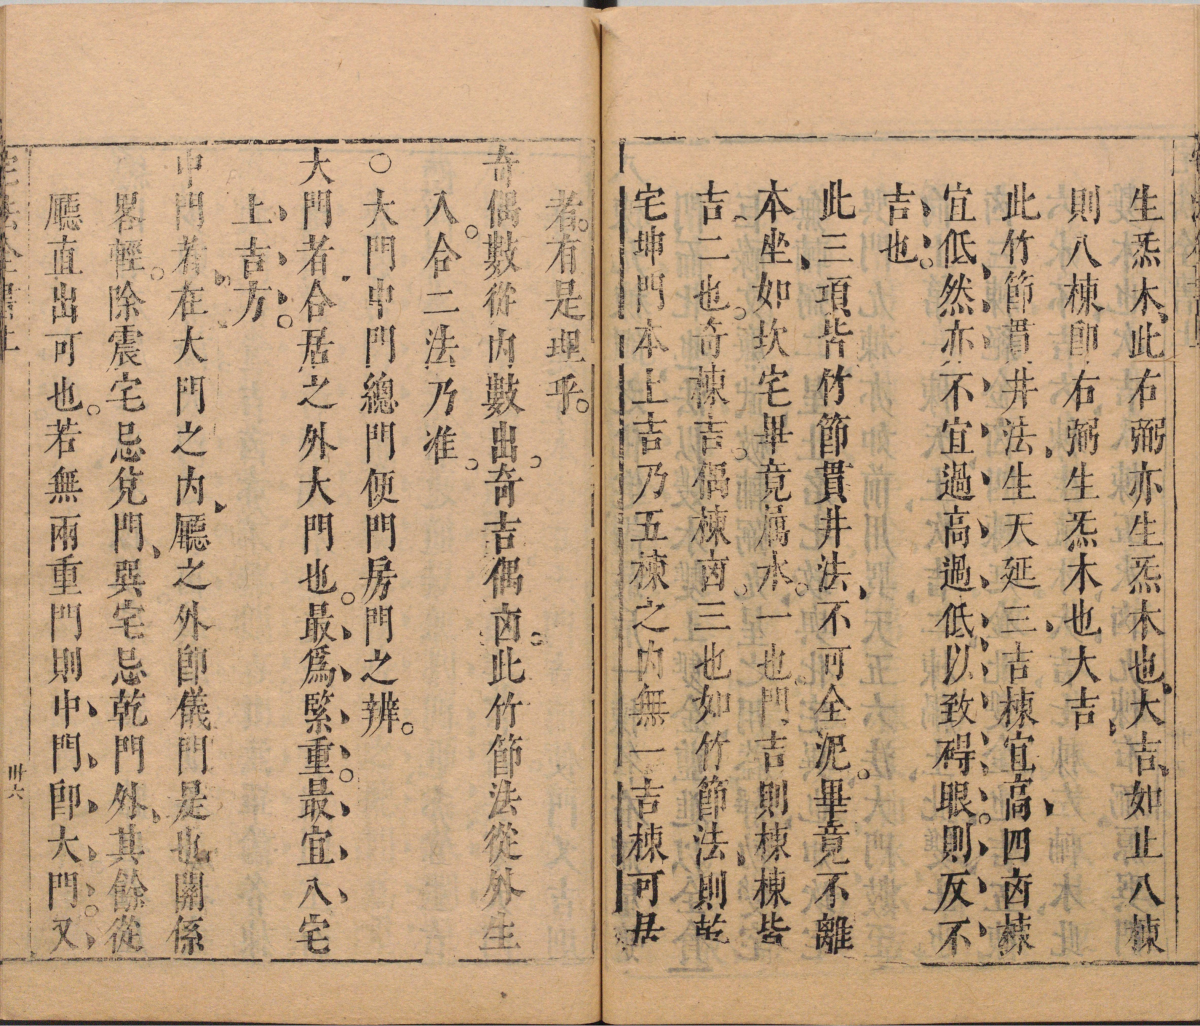 生炁木此右弼亦生炁木也大吉如止八棟
則八棟卽右弼生炁木也大吉
此竹節貫井法生天延三吉棟宜高四凶棟
宜低然亦不宜過高過低以致碍眼則反不
吉也
此三項皆竹節貫井法不可全泥畢竟不離
本坐如坎宅畢竟屬水一也門吉則棟棟皆
吉二也奇棟吉偶棟凶三也如竹節法則乾
宅坤門本上吉乃五棟之內無一吉棟可居
者有是理乎
奇偶數從內數出奇吉偶凶此竹節法從外生
入合二法乃准
○大門中門總門便門房門之辨
大門者合居之外大門也最爲緊重最宜入宅
上吉方
中門者在大門之內廳之外卽儀門是也關係
畧輕除震宅忌兌門巽宅忌乾門外其餘從
廳直出可也若無兩重門則中門卽大門又
卅六